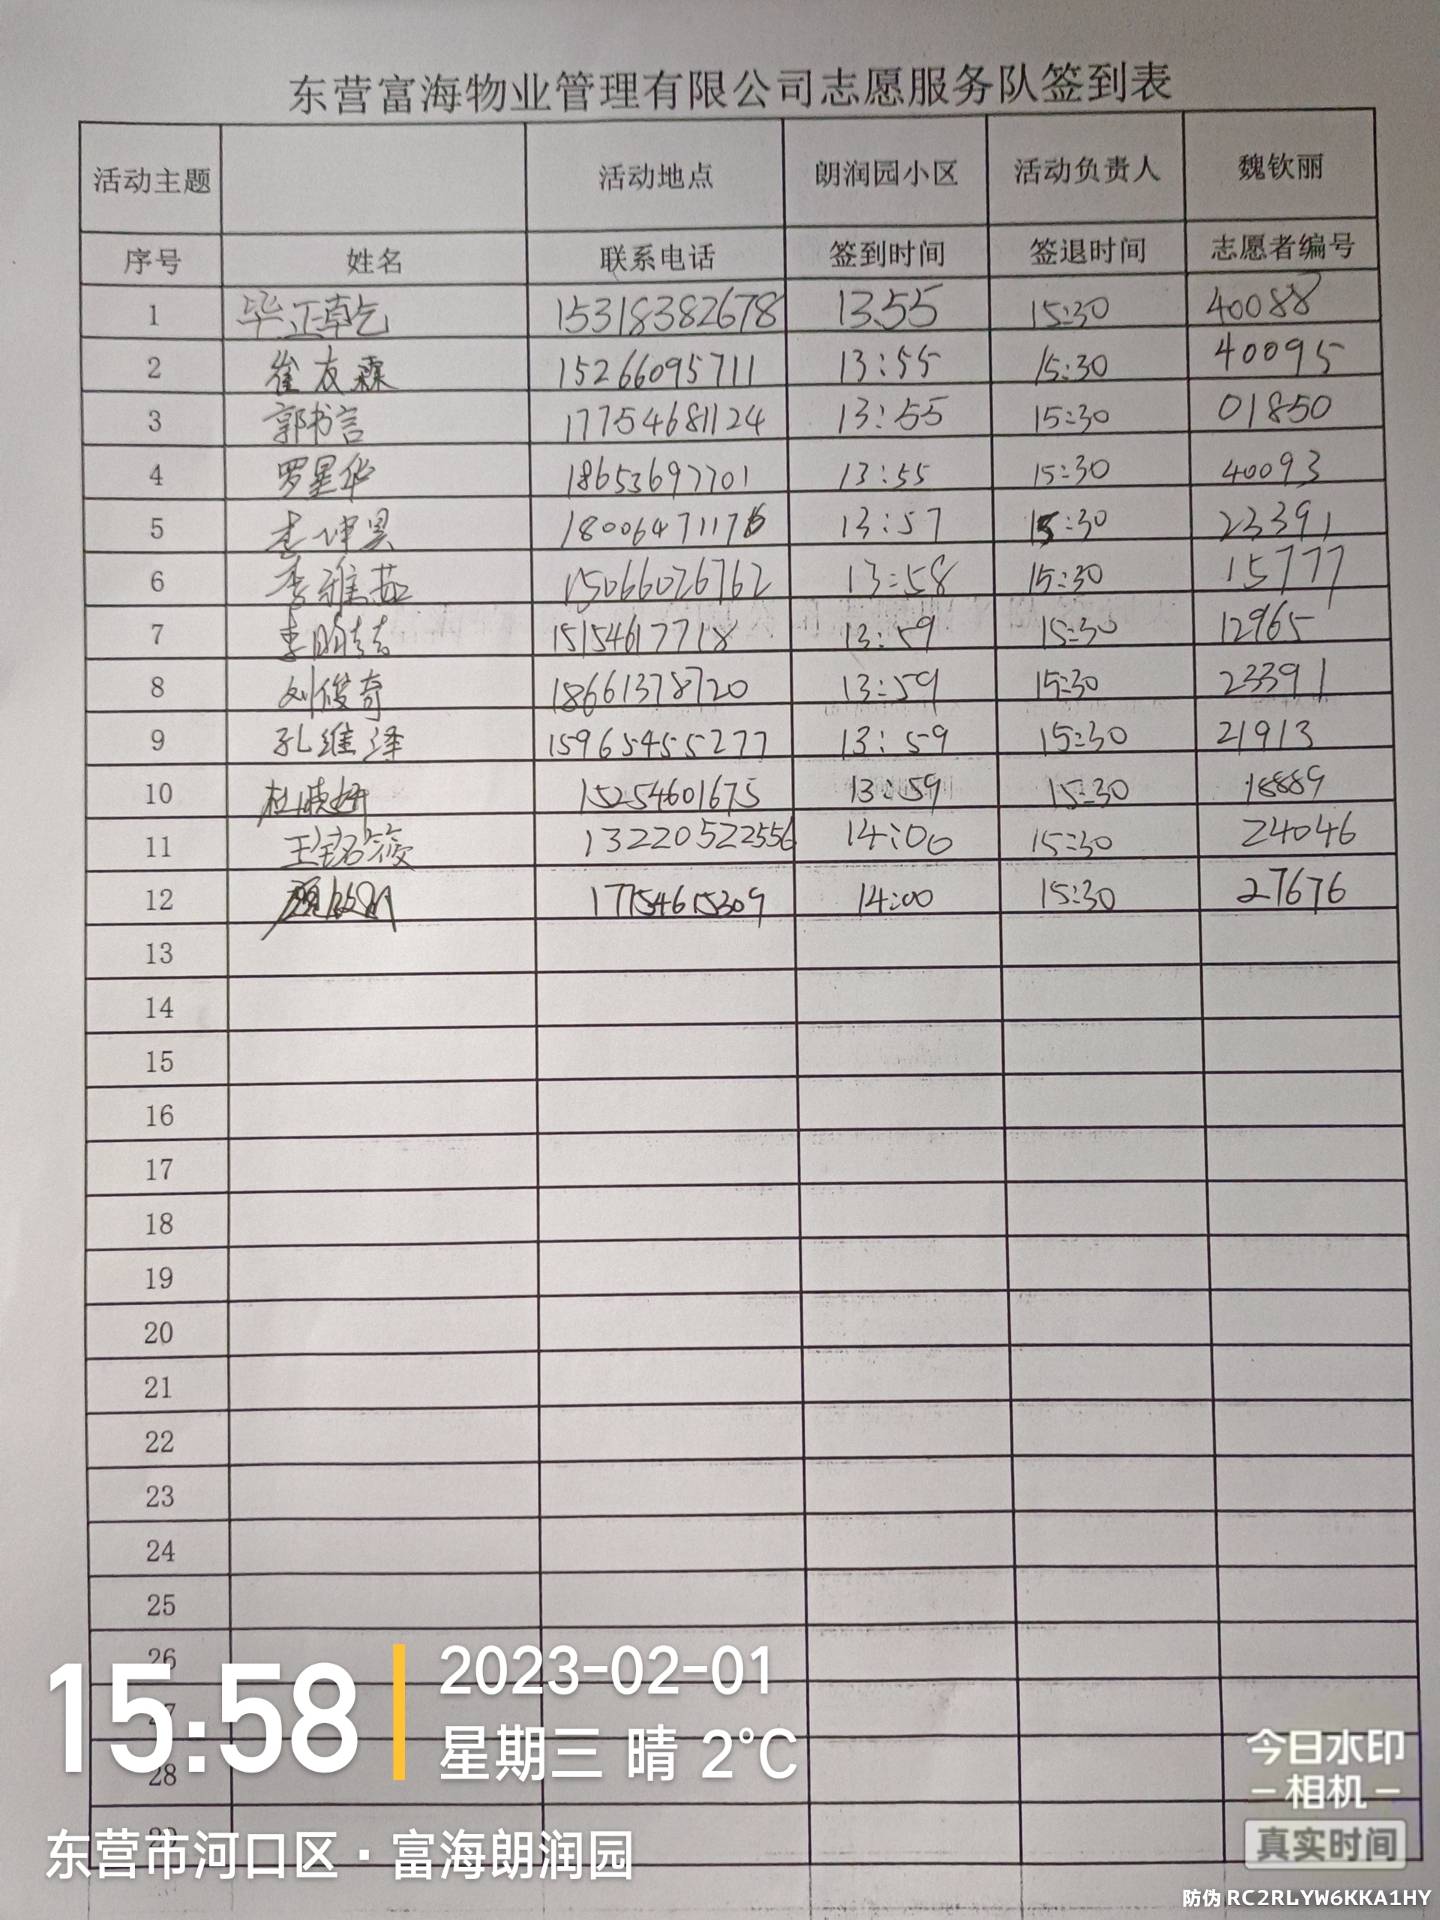 东营富海物业管理有限公司志愿服务队签到表
活动主题 活动地点 朗润园小区 活动负责人 魏钦丽
序号 姓名 联系电话 签到时间 签退时间 志愿者编号
1 毕正乾 15318382678 13:55 15:30 40088
2 崔友霖 15266095711 13:55 15:30 40095
3 郭书言 17754681124 13:55 15:30 01850
4 罗星华 18653697701 13:55 15:30 40093
5 李坤昊 18006471176 13:57 15:30 23391
6 李雅茹 15066026762 13:58 15:30 15777
7 李 15154617718 13:59 15:30 12965
8 刘俊奇 18661378720 13:59 15:30 23391
9 孔维泽 15965455277 13:59 15:30 21913
10 杜晓妍 15254601675 13:59 15:30 18889
11 王铭筱 13220522556 14:00 15:30 24046
12 17754615309 14:00 15:30 27676
13
14
15
16
17
18
19
20
21
22
23
24
25
26
27
28
29
15:58
2023-02-01
星期三 晴 2℃
东营市河口区·富海朗润园
今日水印
-相机-
真实时间
防伪 RC2RLYW6KKA1HY